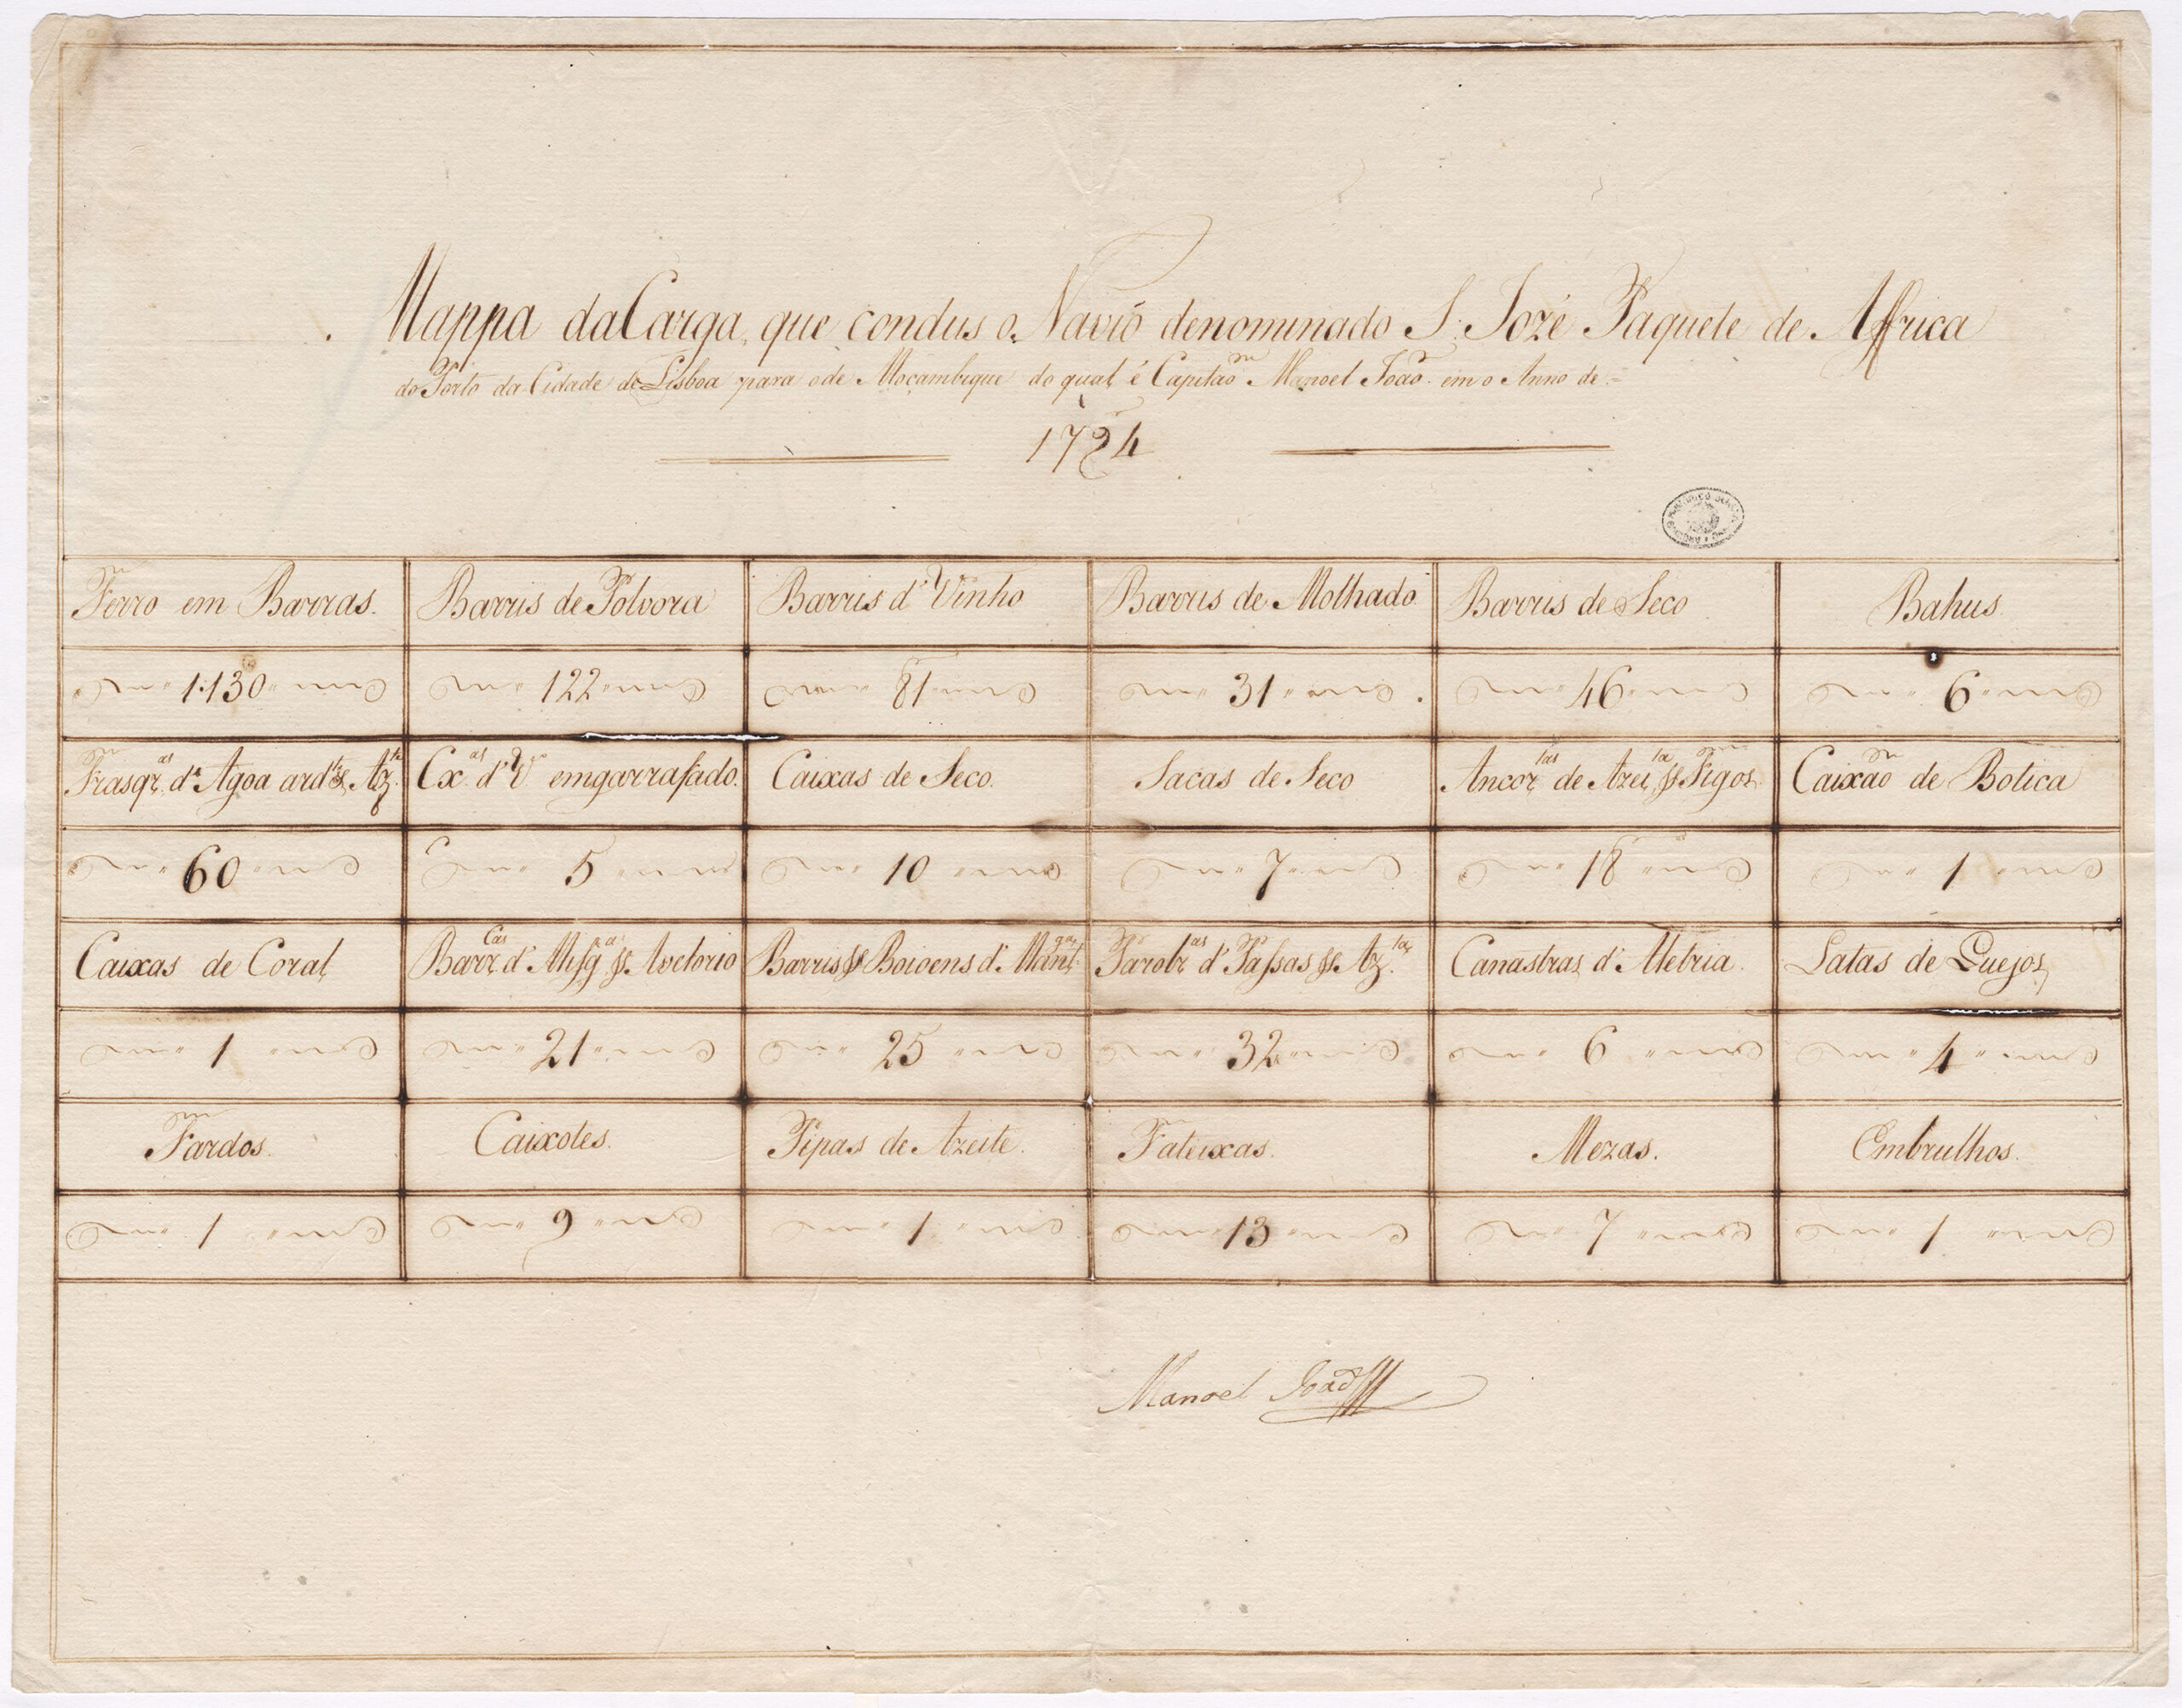 Mappa da Carga, que condus o Navio denominado S. Jozé Paquete de Affrica
do Porto da Cidade de Lisboa para o de Moçambique do qual é Capitão Manoel João em o Anno de =
1794
Ferro em Barras. Barris de Polvora Barris d' Vinho Barris de Molhado Barris de Seco Bahus
1130 122 81 31 46 6
Frasqr.as d'Agoa ard.te & Az.te Cx.as d' V.º emgarrafado. Caixas de Seco. Sacas de Seco Ancor.tas de Azei.ta & Figos Caixão de Botica
60 5 10 7 18 1
Caixas de Coral Barr.cas d' Miss.ga & Avelorio Barris & Boioens d' Mant.ga Parolr.as d' Passas & Az.ta Canastras d' Aletria. Latas de Queijos
1 21 25 32 6 4
Fardos. Caixotes. Pipas de Azeite. Fateixas. Mezas. Embrulhos.
1 9 1 13 7 1
Manoel João